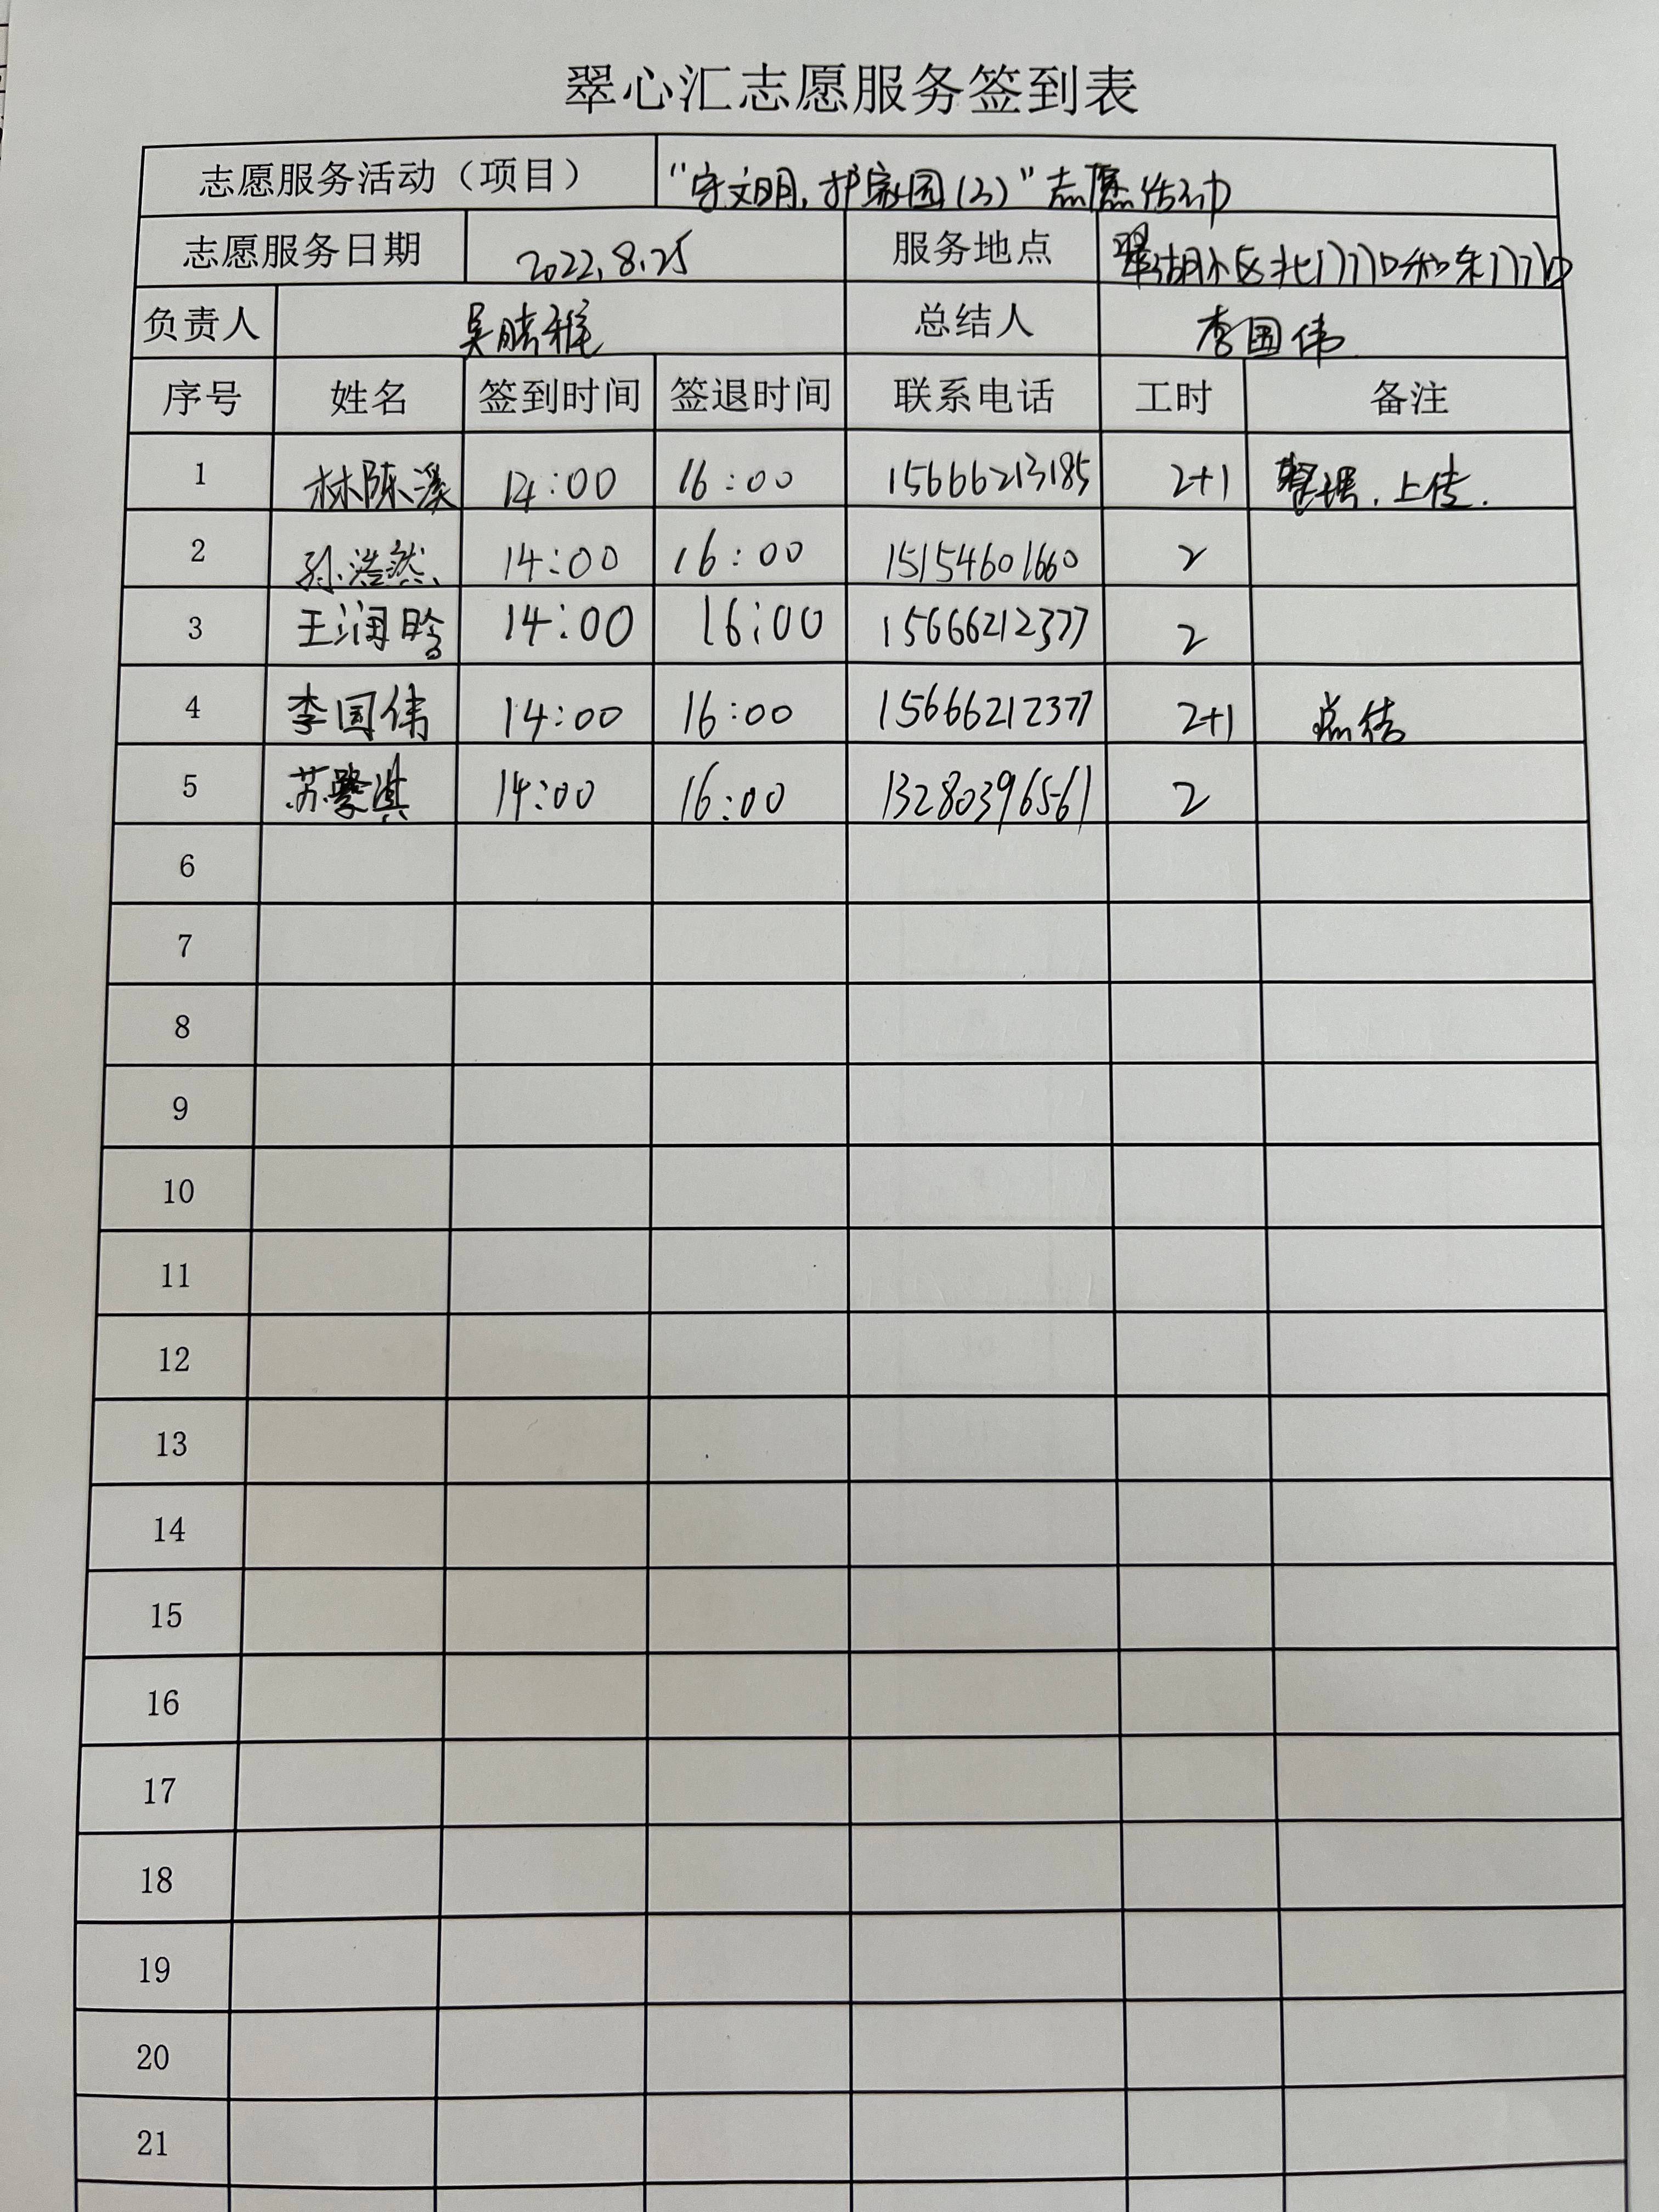 翠心汇志愿服务签到表
志愿服务活动（项目） "守文明,护家园(3)"志愿活动
志愿服务日期 2022.8.25 服务地点 翠湖小区北门门口和东门门口
负责人 吴 雅 总结人 李国伟
序号 姓名 签到时间 签退时间 联系电话 工时 备注
1 林陈溪 14:00 16:00 15666213185 2+1 整理.上传.
2 孙浩然 14:00 16:00 15154601660 2
3 王润晗 14:00 16:00 15666212377 2
4 李国伟 14:00 16:00 15666212377 2+1 总结
5 苏 淇 14:00 16:00 13280396561 2
6
7
8
9
10
11
12
13
14
15
16
17
18
19
20
21